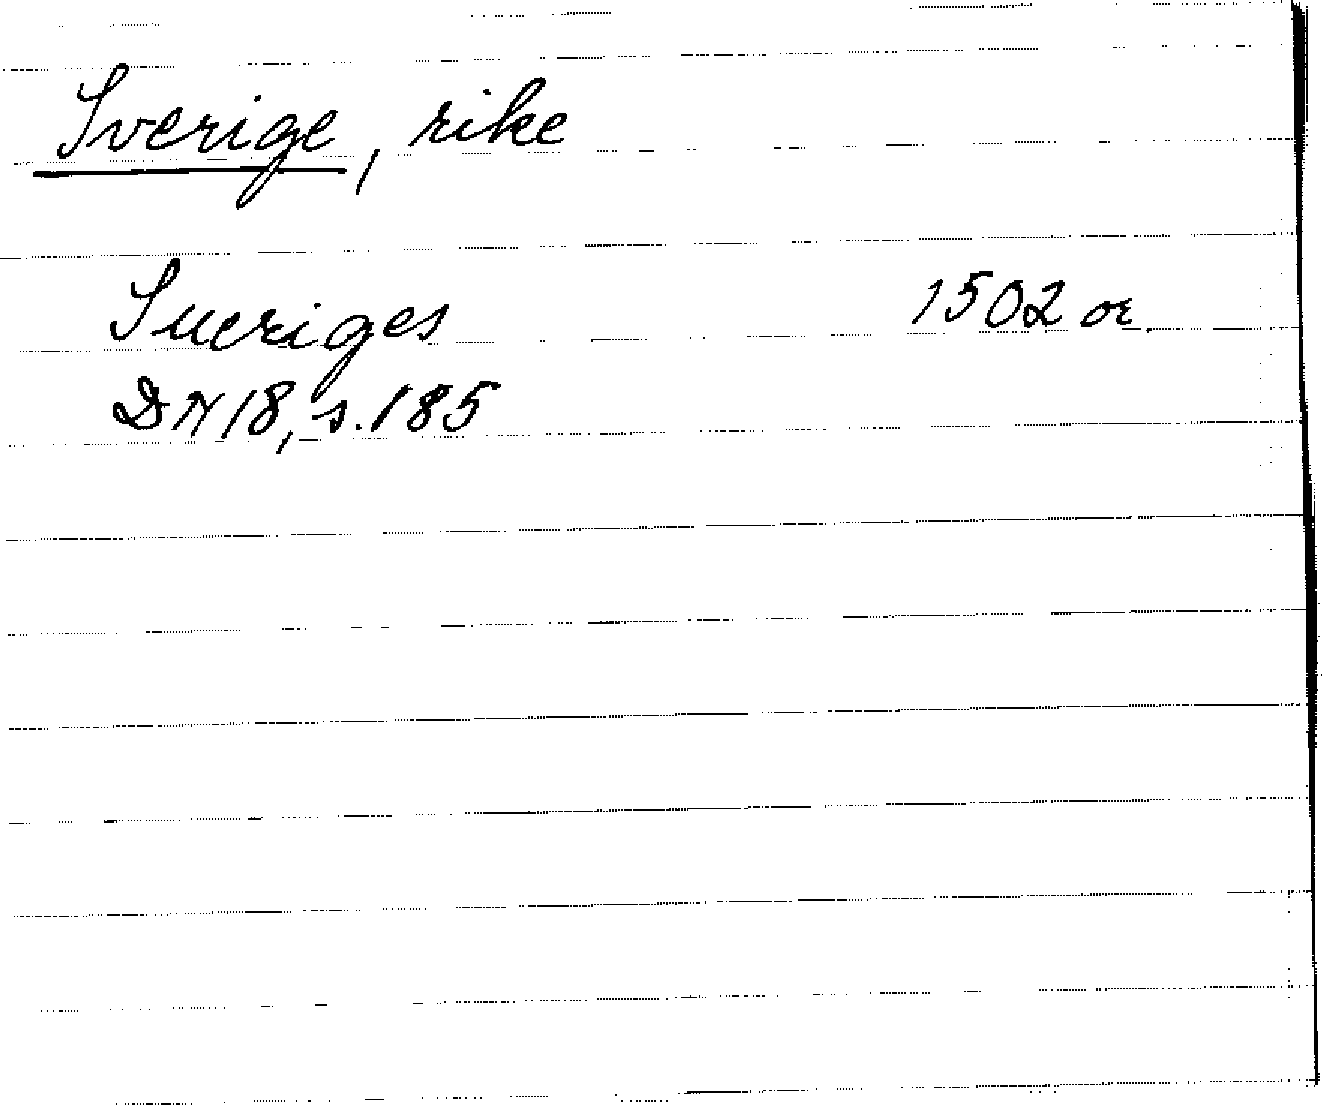 Sverige, rike
Sueriges 1502 or.
DN 18, s. 185